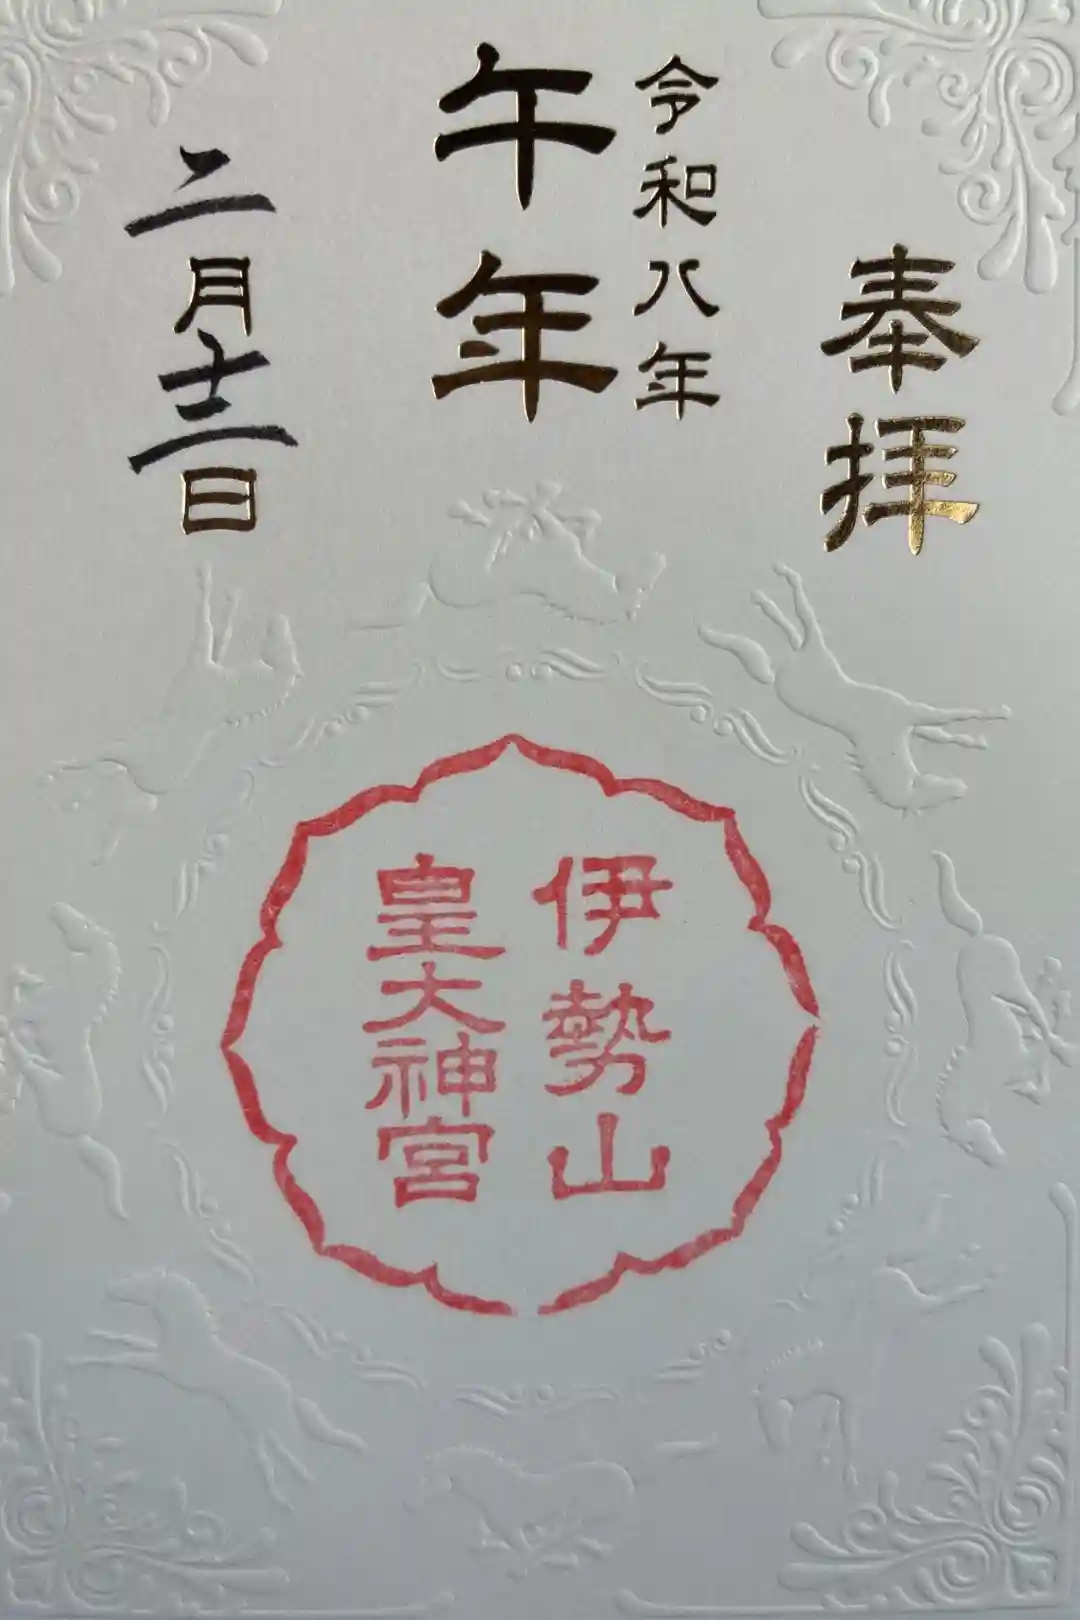 奉拝
令和八年
午年
二月十二日
伊勢山
皇大神宮